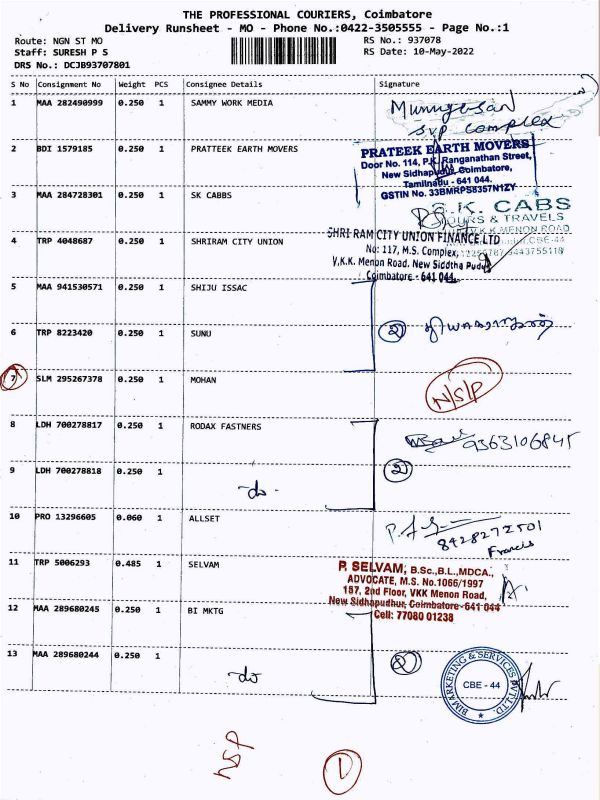 THE PROFESSIONAL COURIERS, Coimbatore
Delivery Runsheet - MO - Phone No.:0422-3505555 - Page No.:1
Route: NGN ST MO
RS No.: 937078
Staff: SURESH P S
RS Date: 10-May-2022
DRS No.: DCJB93707801
S No Consignment No Weight PCS Consignee Details Signature
1 MAA 282490999 0.250 1 SAMMY WORK MEDIA
Murugesan
SVP complex
2 BDI 1579185 0.250 1 PRATTEEK EARTH MOVERS
PRATEEK EARTH MOVERS
Door No. 114, P.K. Ranganathan Street,
New Sidhapudur, Coimbatore,
Tamilnadu - 641 044.
GSTIN No. 33BMRPS8357N1ZY
3 MAA 284728301 0.250 1 SK CABBS
S.K. CABS
TOURS & TRAVELS
V.K.K MENON ROAD
4 TRP 4048687 0.250 1 SHRIRAM CITY UNION
SHRI RAM CITY UNION FINANCE LTD
No: 117, M.S. Complex,
V.K.K. Menon Road. New Siddtha Pudur
Coimbatore - 641 044.
5 MAA 941530571 0.250 1 SHIJU ISSAC
6 TRP 8223420 0.250 1 SUNU
2
7 SLM 295267378 0.250 1 MOHAN
N/S/P
8 LDH 700278817 0.250 1 RODAX FASTNERS
9363106845
9 LDH 700278818 0.250 1
-do-
2
10 PRO 13296605 0.060 1 ALLSET
8428272501
Francis
11 TRP 5006293 0.485 1 SELVAM
P. SELVAM, B.Sc.,B.L.,MDCA.,
ADVOCATE, M.S. No.1066/1997
157, 2nd Floor, VKK Menon Road,
New Sidhapudhur, Coimbatore-641 044
Cell: 77080 01238
12 MAA 289680245 0.250 1 BI MKTG
13 MAA 289680244 0.250 1
-do-
2
BI MARKETING & SERVICES PVT.LTD.
CBE - 44
NSP
1